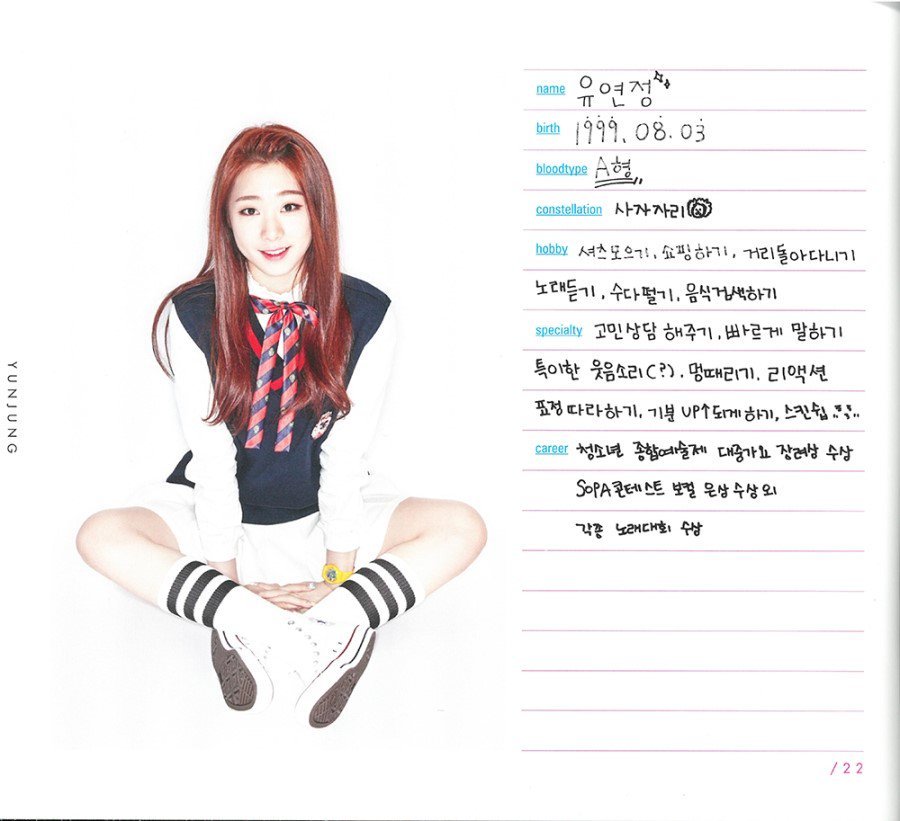 YUNJUNG
name 유연정
birth 1999. 08. 03
bloodtype A형
constellation 사자자리
hobby 셔츠모으기, 쇼핑하기, 거리돌아다니기
노래듣기, 수다떨기, 음식검색하기
specialty 고민상담 해주기, 빠르게 말하기
특이한 웃음소리(?), 멍때리기, 리액션
표정 따라하기, 기분 UP↑되게하기, 스킨쉽
career 청소년 종합예술제 대중가요 장려상 수상
SOPA콘테스트 보컬 은상 수상 외
각종 노래대회 수상
/22